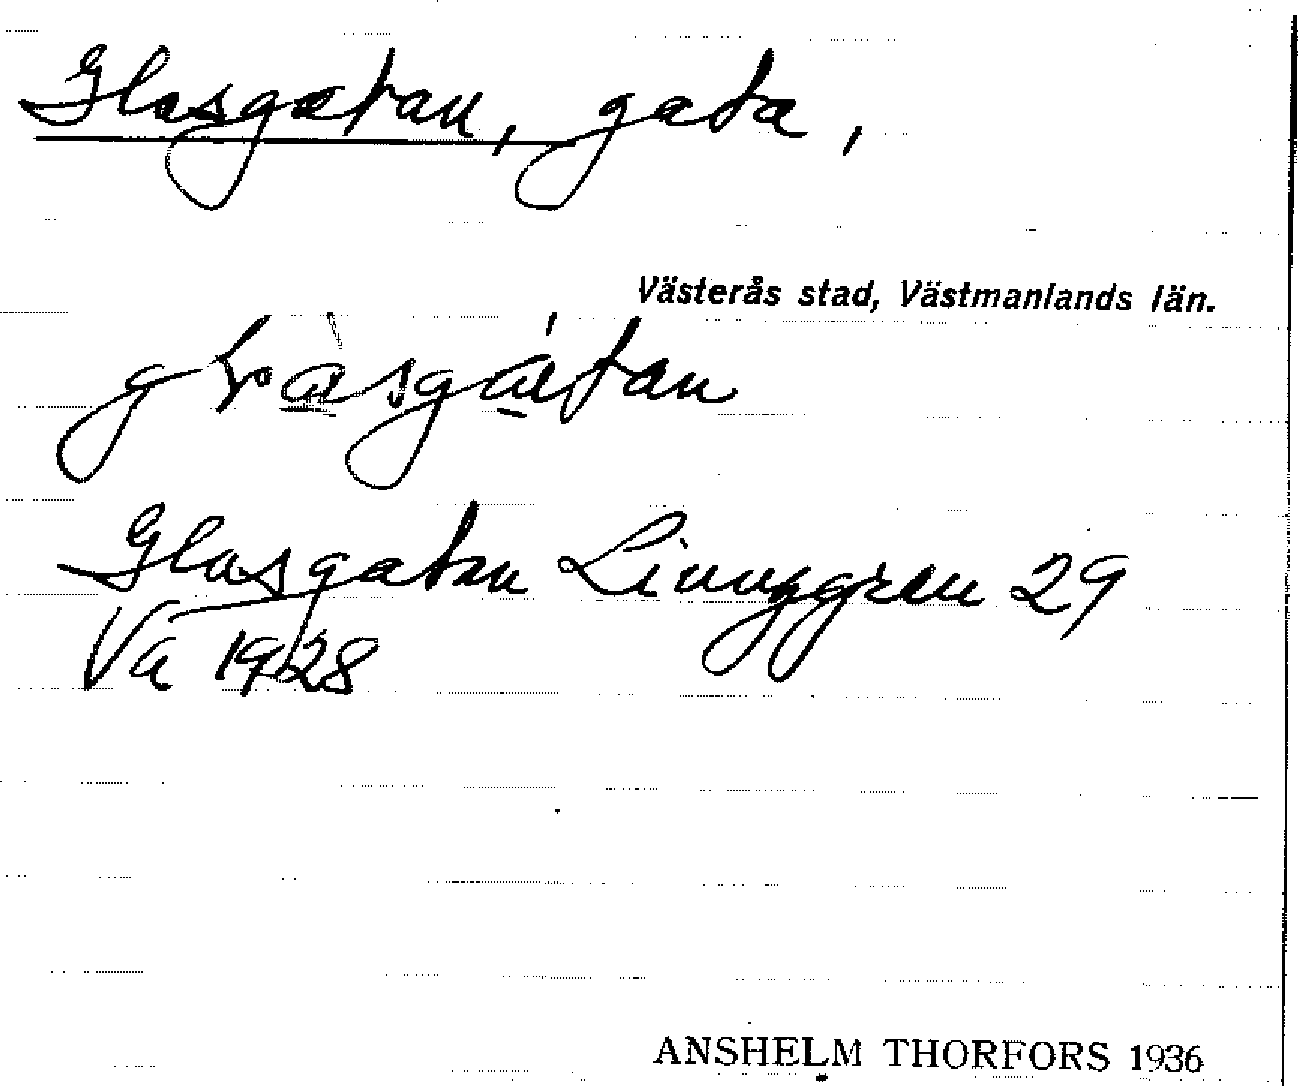 Glasgatan, gata,
Västerås stad, Västmanlands län.
Glasgatan 29
Vä 1928
ANSHELM THORFORS 1936